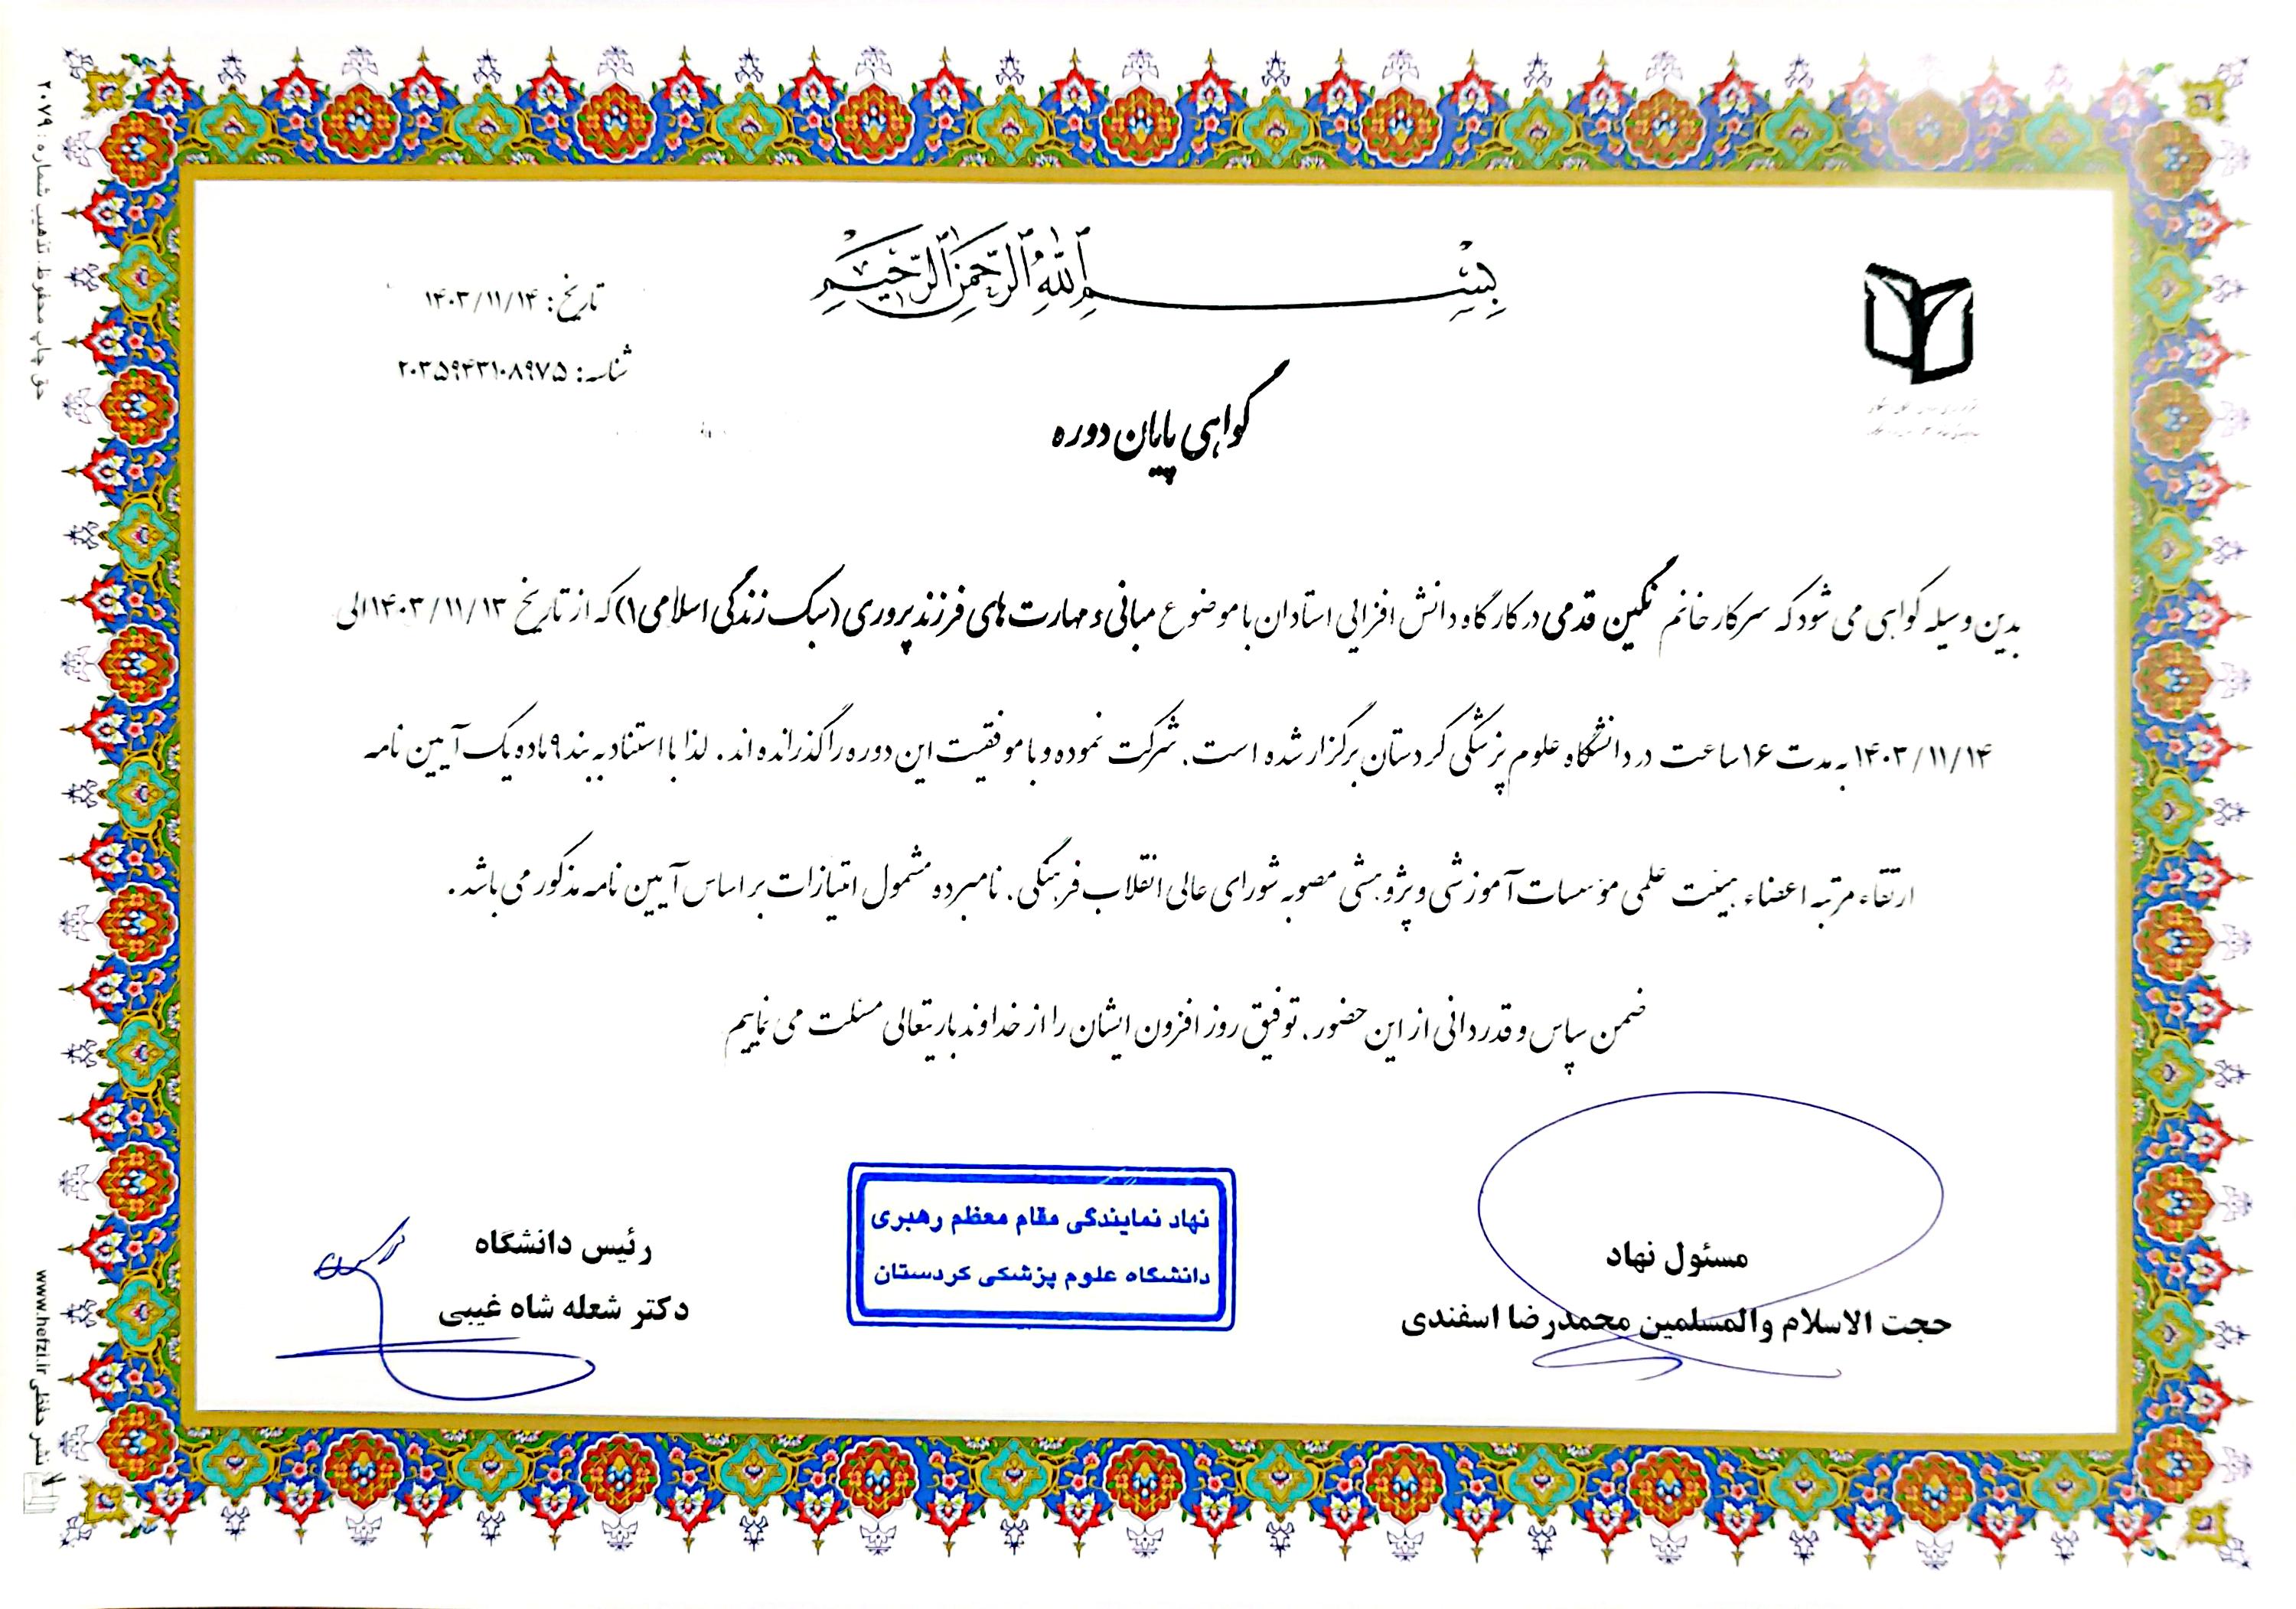 بِسْمِ اللهِ الرَّحْمنِ الرَّحيمِ
تاریخ: ۱۴۰۳/۱۱/۱۴
شناسه: ۲۰۳۵۹۴۳۱۰۸۹۷۵
گواهی پایان دوره
بدین وسیله گواهی می شود که سرکار خانم نگین قدمی در کارگاه دانش افزایی استادان با موضوع مبانی و مهارت های فرزندپروری (سبک زندگی اسلامی۱) که از تاریخ ۱۴۰۳/۱۱/۱۳ الی
۱۴۰۳/۱۱/۱۴ به مدت ۱۶ ساعت در دانشگاه علوم پزشکی کردستان برگزار شده است، شرکت نموده و با موفقیت این دوره را گذرانده اند. لذا با استناد به بند ۹ ماده یک آیین نامه
ارتقاء مرتبه اعضاء هیئت علمی مؤسسات آموزشی و پژوهشی مصوبه شورای عالی انقلاب فرهنگی، نامبرده مشمول امتیازات بر اساس آیین نامه مذکور می باشد.
ضمن سپاس و قدردانی از این حضور، توفیق روز افزون ایشان را از خداوند باریتعالی مسئلت می نماییم
مسئول نهاد
حجت الاسلام والمسلمین محمدرضا اسفندی
نهاد نمایندگی مقام معظم رهبری
دانشگاه علوم پزشکی کردستان
رئیس دانشگاه
دکتر شعله شاه غیبی
حق چاپ محفوظ. تذهیب شماره: ۲۰۷۹
نشر حفظی www.hefzi.ir